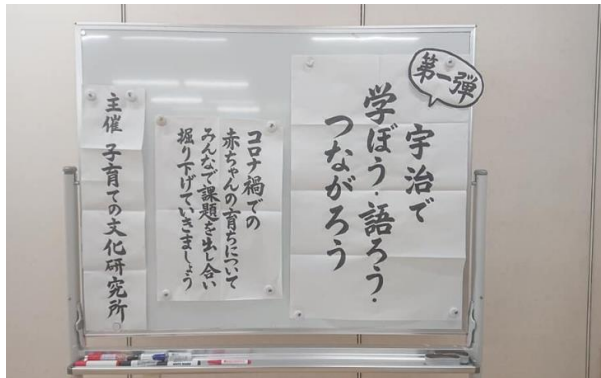 第一弾
宇治で
学ぼう・語ろう・
つながろう
コロナ禍での
赤ちゃんの育ちについて
みんなで課題を出し合い
掘り下げていきましょう
主催 子育ての文化研究所